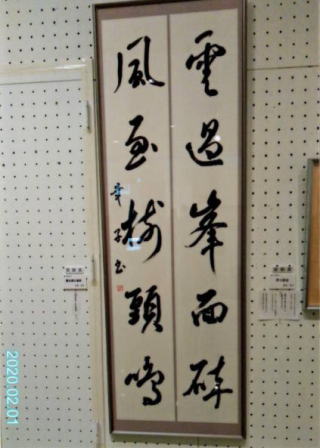 雲過峯面碎
風至樹頭鳴
書
2020.02.01